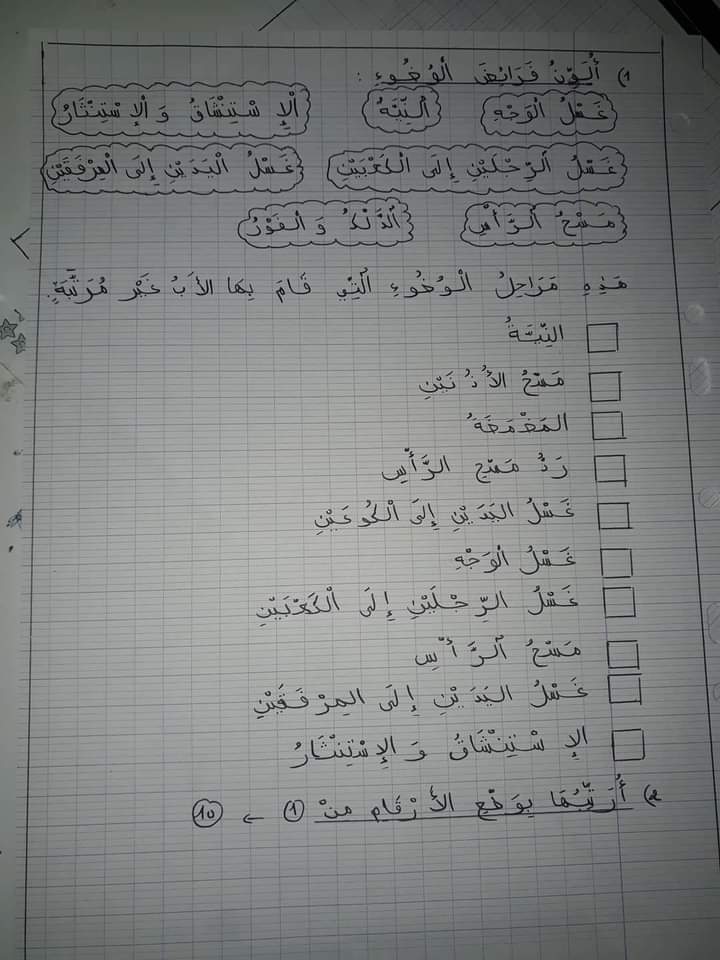 1) أُلَوِّنُ فَرَائِضَ الْوُضُوءِ :
غَسْلُ الْوَجْهِ النِّيَّةُ الْإِسْتِنْشَاقُ وَ الْإِسْتِنْثَارُ
غَسْلُ الرِّجْلَيْنِ إِلَى الْكَعْبَيْنِ غَسْلُ الْيَدَيْنِ إِلَى الْمِرْفَقَيْنِ
مَسْحُ الرَّأْسِ الدَّلْكُ وَ الْفَوْرُ
هَذِهِ مَرَاحِلُ الْوُضُوءِ الَّتِي قَامَ بِهَا الأَبُ غَيْرَ مُرَتَّبَةٍ
النِّيَّةُ
مَسْحُ الأُذُنَيْنِ
المَضْمَضَةُ
رَدُّ مَسْحِ الرَّأْسِ
غَسْلُ اليَدَيْنِ إِلَى الْكُوعَيْنِ
غَسْلُ الْوَجْهِ
غَسْلُ الرِّجْلَيْنِ إِلَى الْكَعْبَيْنِ
مَسْحُ الرَّأْسِ
غَسْلُ اليَدَيْنِ إِلَى المِرْفَقَيْنِ
الإِسْتِنْشَاقُ وَ الإِسْتِنْثَارُ
2) أُرَتِّبُهَا بِوَضْعِ الأَرْقَامِ مِنْ 1 ← 10